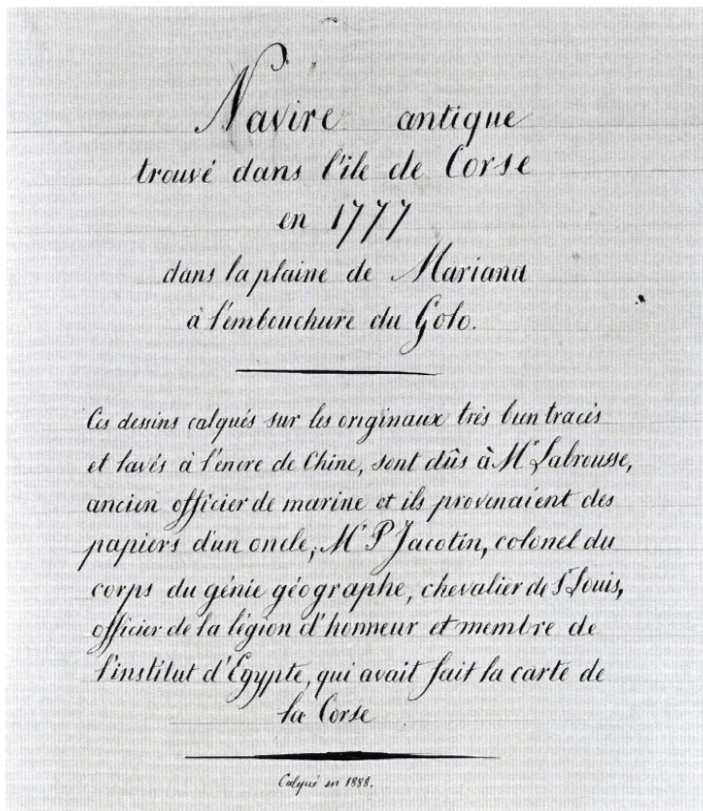 Navire antique
trouvé dans l'île de Corse
en 1777
dans la plaine de Mariana
à l'embouchure du Golo.
Ces dessins calqués sur les originaux très bien tracés
et lavés à l'encre de Chine, sont dûs à Mr Labrousse,
ancien officier de marine et ils provenaient des
papiers d'un oncle, Mr P Jacotin, colonel du
corps du génie géographe, chevalier de St Louis,
officier de la légion d'honneur et membre de
l'institut d'Egypte, qui avait fait la carte de
la Corse
Calqué en 1888.